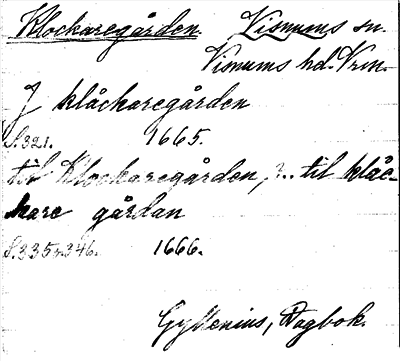 Klockaregården. Visnums sn.
Visnums hd. Vrm.
J klåckaregården
S. 321. 1665.
til Klockaregården, ... til klåc-
kare gårdan
S. 335, 346. 1666.
Gyllenius, Dagbok.